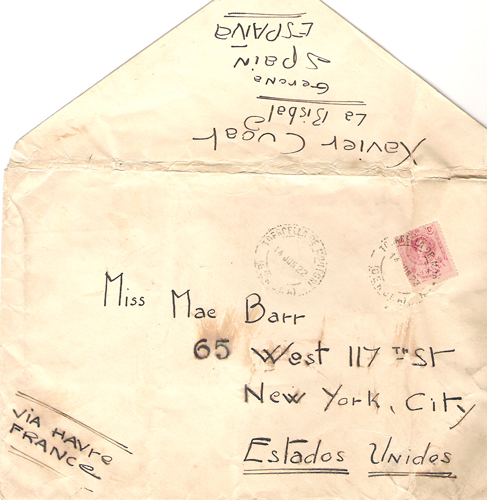 Xavier Cugat
La Bisbal
Gerona
Spain
ESPAÑA
14 JUN 22
Miss Mae Barr
65 West 117 TH ST
New York, City
Estados Unidos
VIA HAVRE
FRANCE